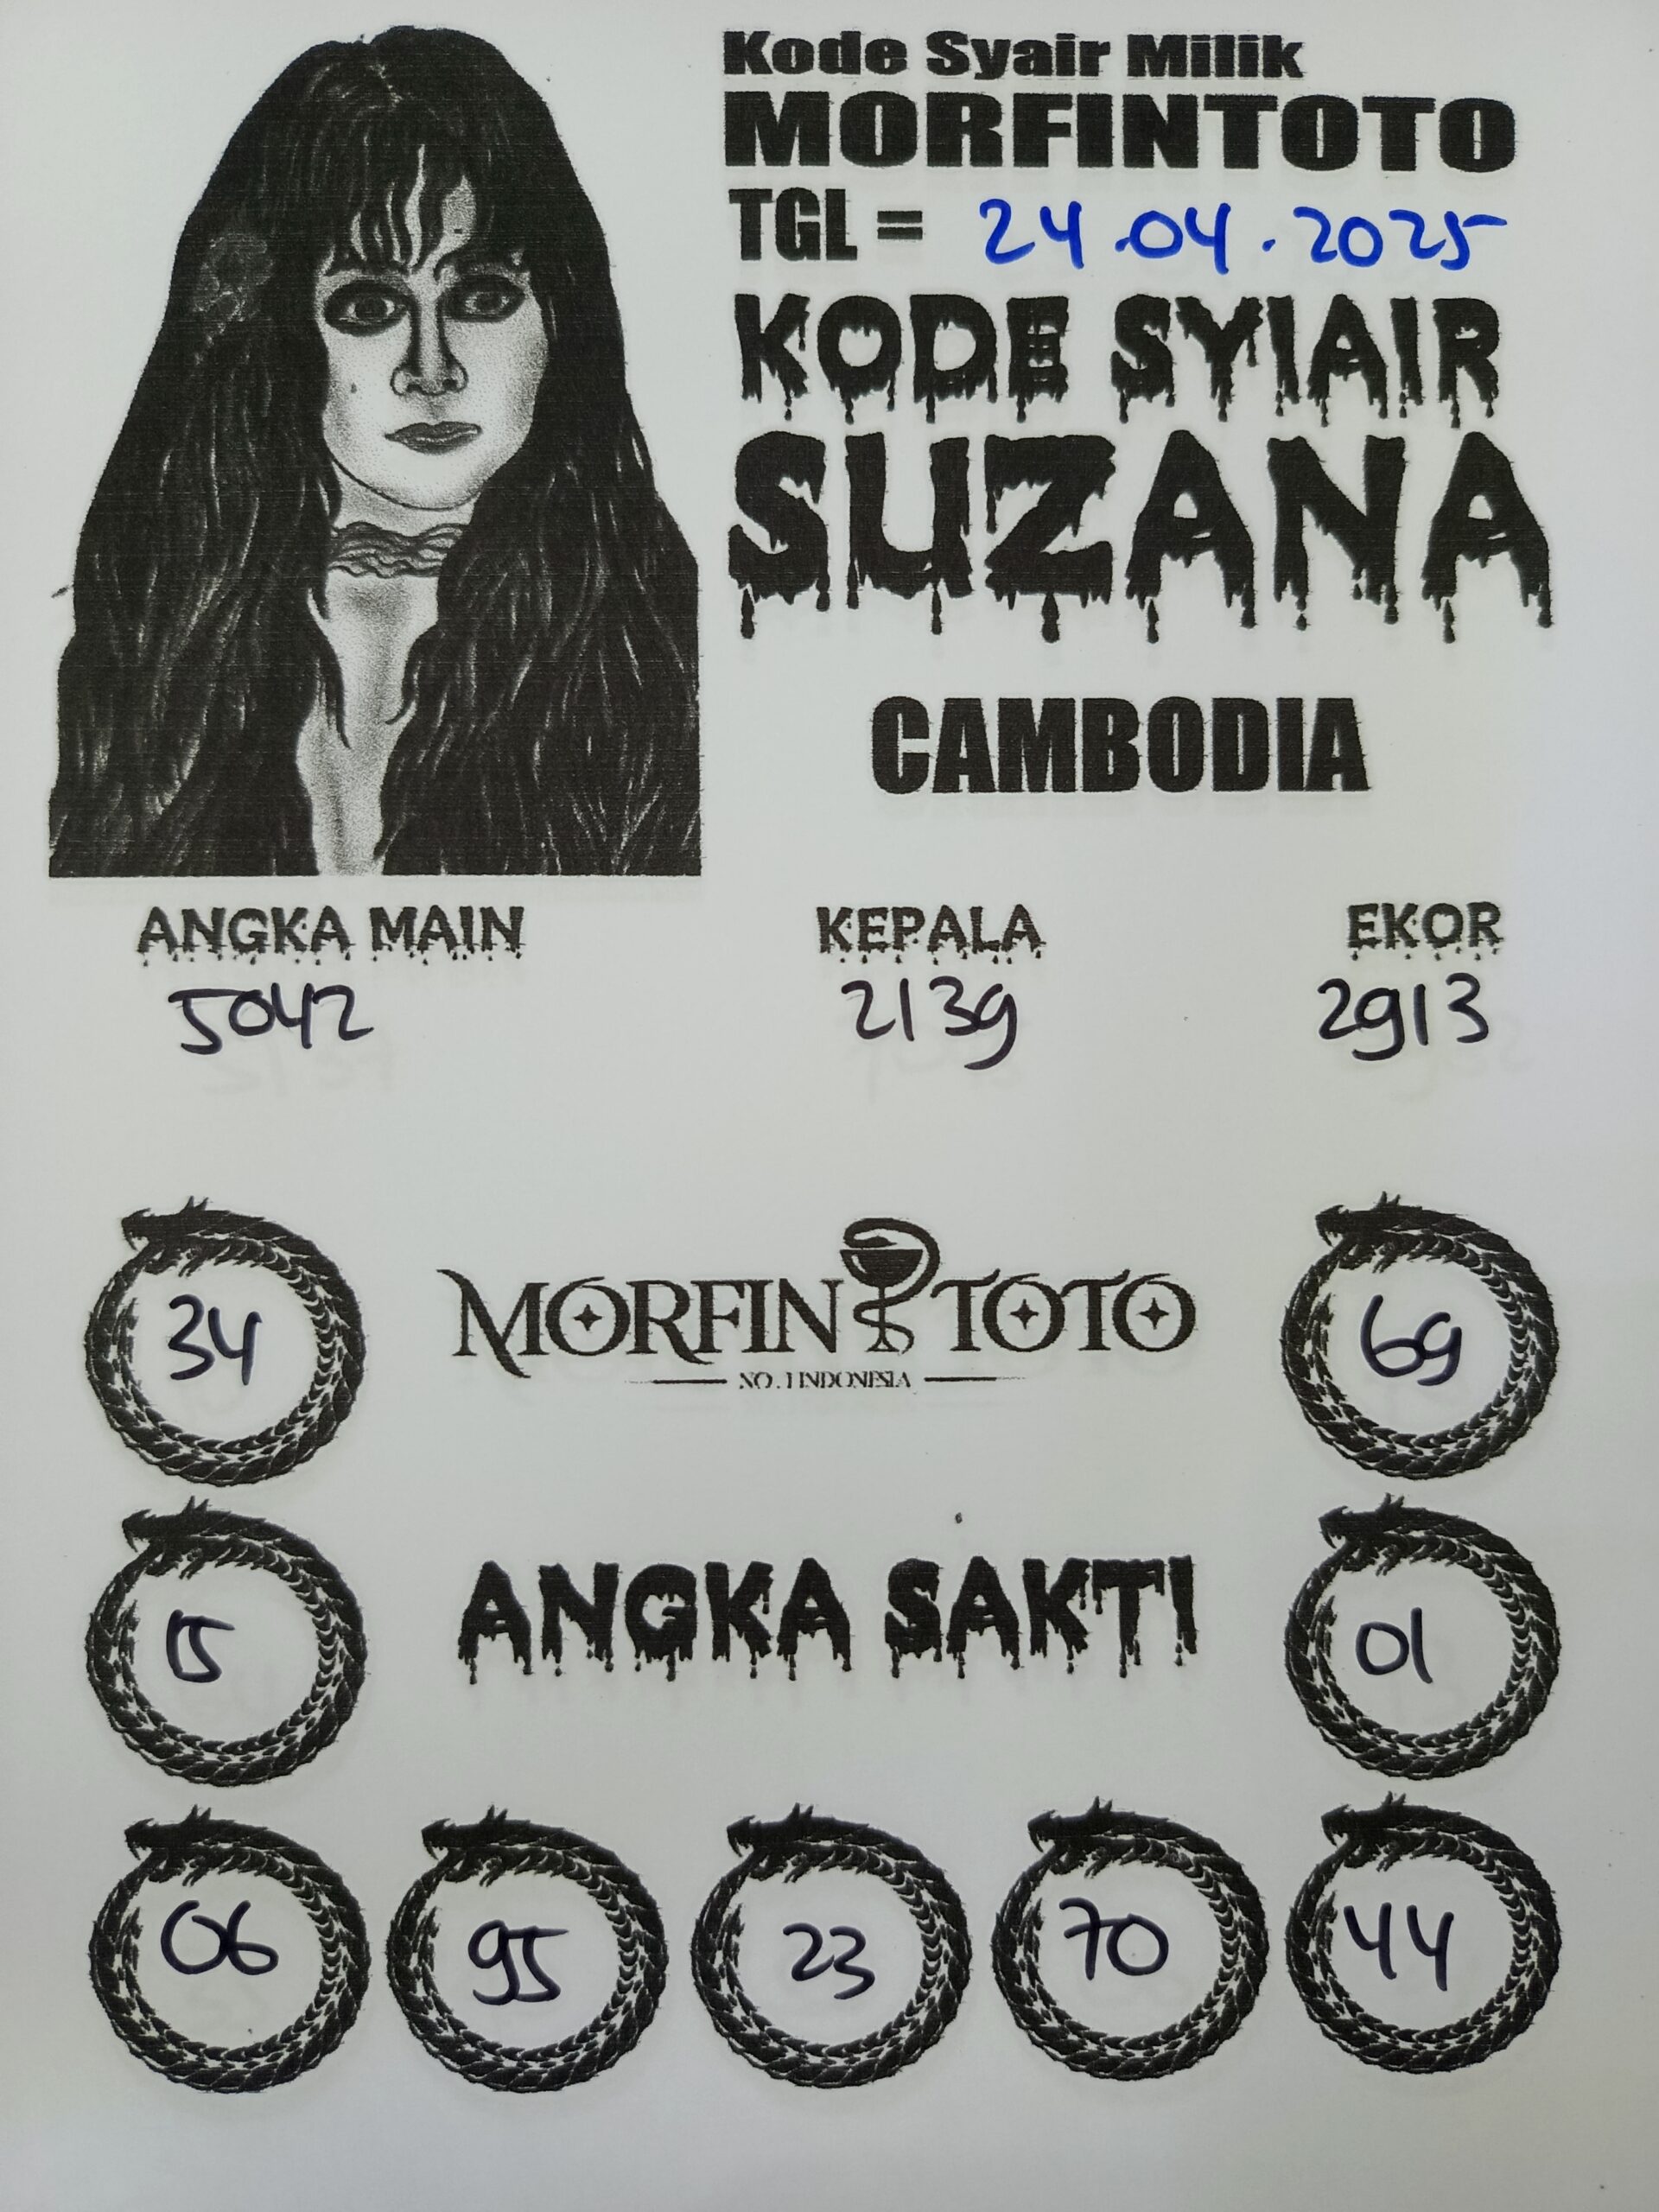 Kode Syair Milik
MORFINTOTO
TGL = 24.04.2025
KODE SYIAIR
SUZANA
CAMBODIA
ANGKA MAIN KEPALA EKOR
5042 2139 2913
34 MORFIN TOTO 69
NO. 1 INDONESIA
15 ANGKA SAKTI 01
06 95 23 70 44